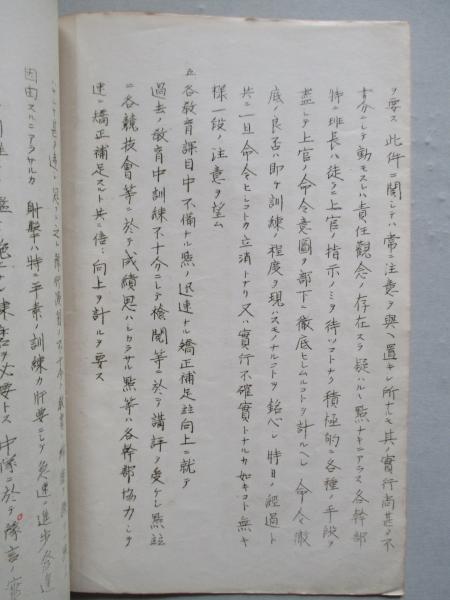 ヲ要ス 此件ニ関シテハ常ニ注意ヲ與ヘ置キシ所ナルモ其ノ實行尚甚タ不
十分ニシテ動モスレハ責任観念ノ存在スラ疑ハルヽ點ナキニアラス各幹部
特ニ班長ハ徒ラニ上官ノ指示ノミヲ待ツコトナク積極的ニ各種ノ手段ヲ
盡シテ上官ノ命令意圖ヲ部下ニ徹底セシムルコトヲ計ルヘシ 命令徹
底ノ良否ハ即チ訓練ノ程度ヲ現ハスモノナルコトヲ銘心シ時日ノ經過ト
共ニ一旦命令セシコトカ立消トナリ又ハ實行不確實トナルカ如キコト無キ
様一段ノ注意ヲ望ム
五、各教育課目中不備ナル點ノ迅速ナル矯正補足並向上ニ就テ
過去ノ教育中訓練不十分ニシテ檢閲等ニ於テ講評ヲ受ケシ點並
ニ各競技會等ニ於テ成績思ハシカラサル點等ハ各幹部協力シテ
速ニ矯正補足スルト共ニ倍々向上ヲ計ルヲ要ス
因由スルニアラサルカ 射撃ハ特ニ平素ノ訓練カ肝要ニシテ急速ノ進歩發達
練習ヲ必要トス 中隊ニ於テ